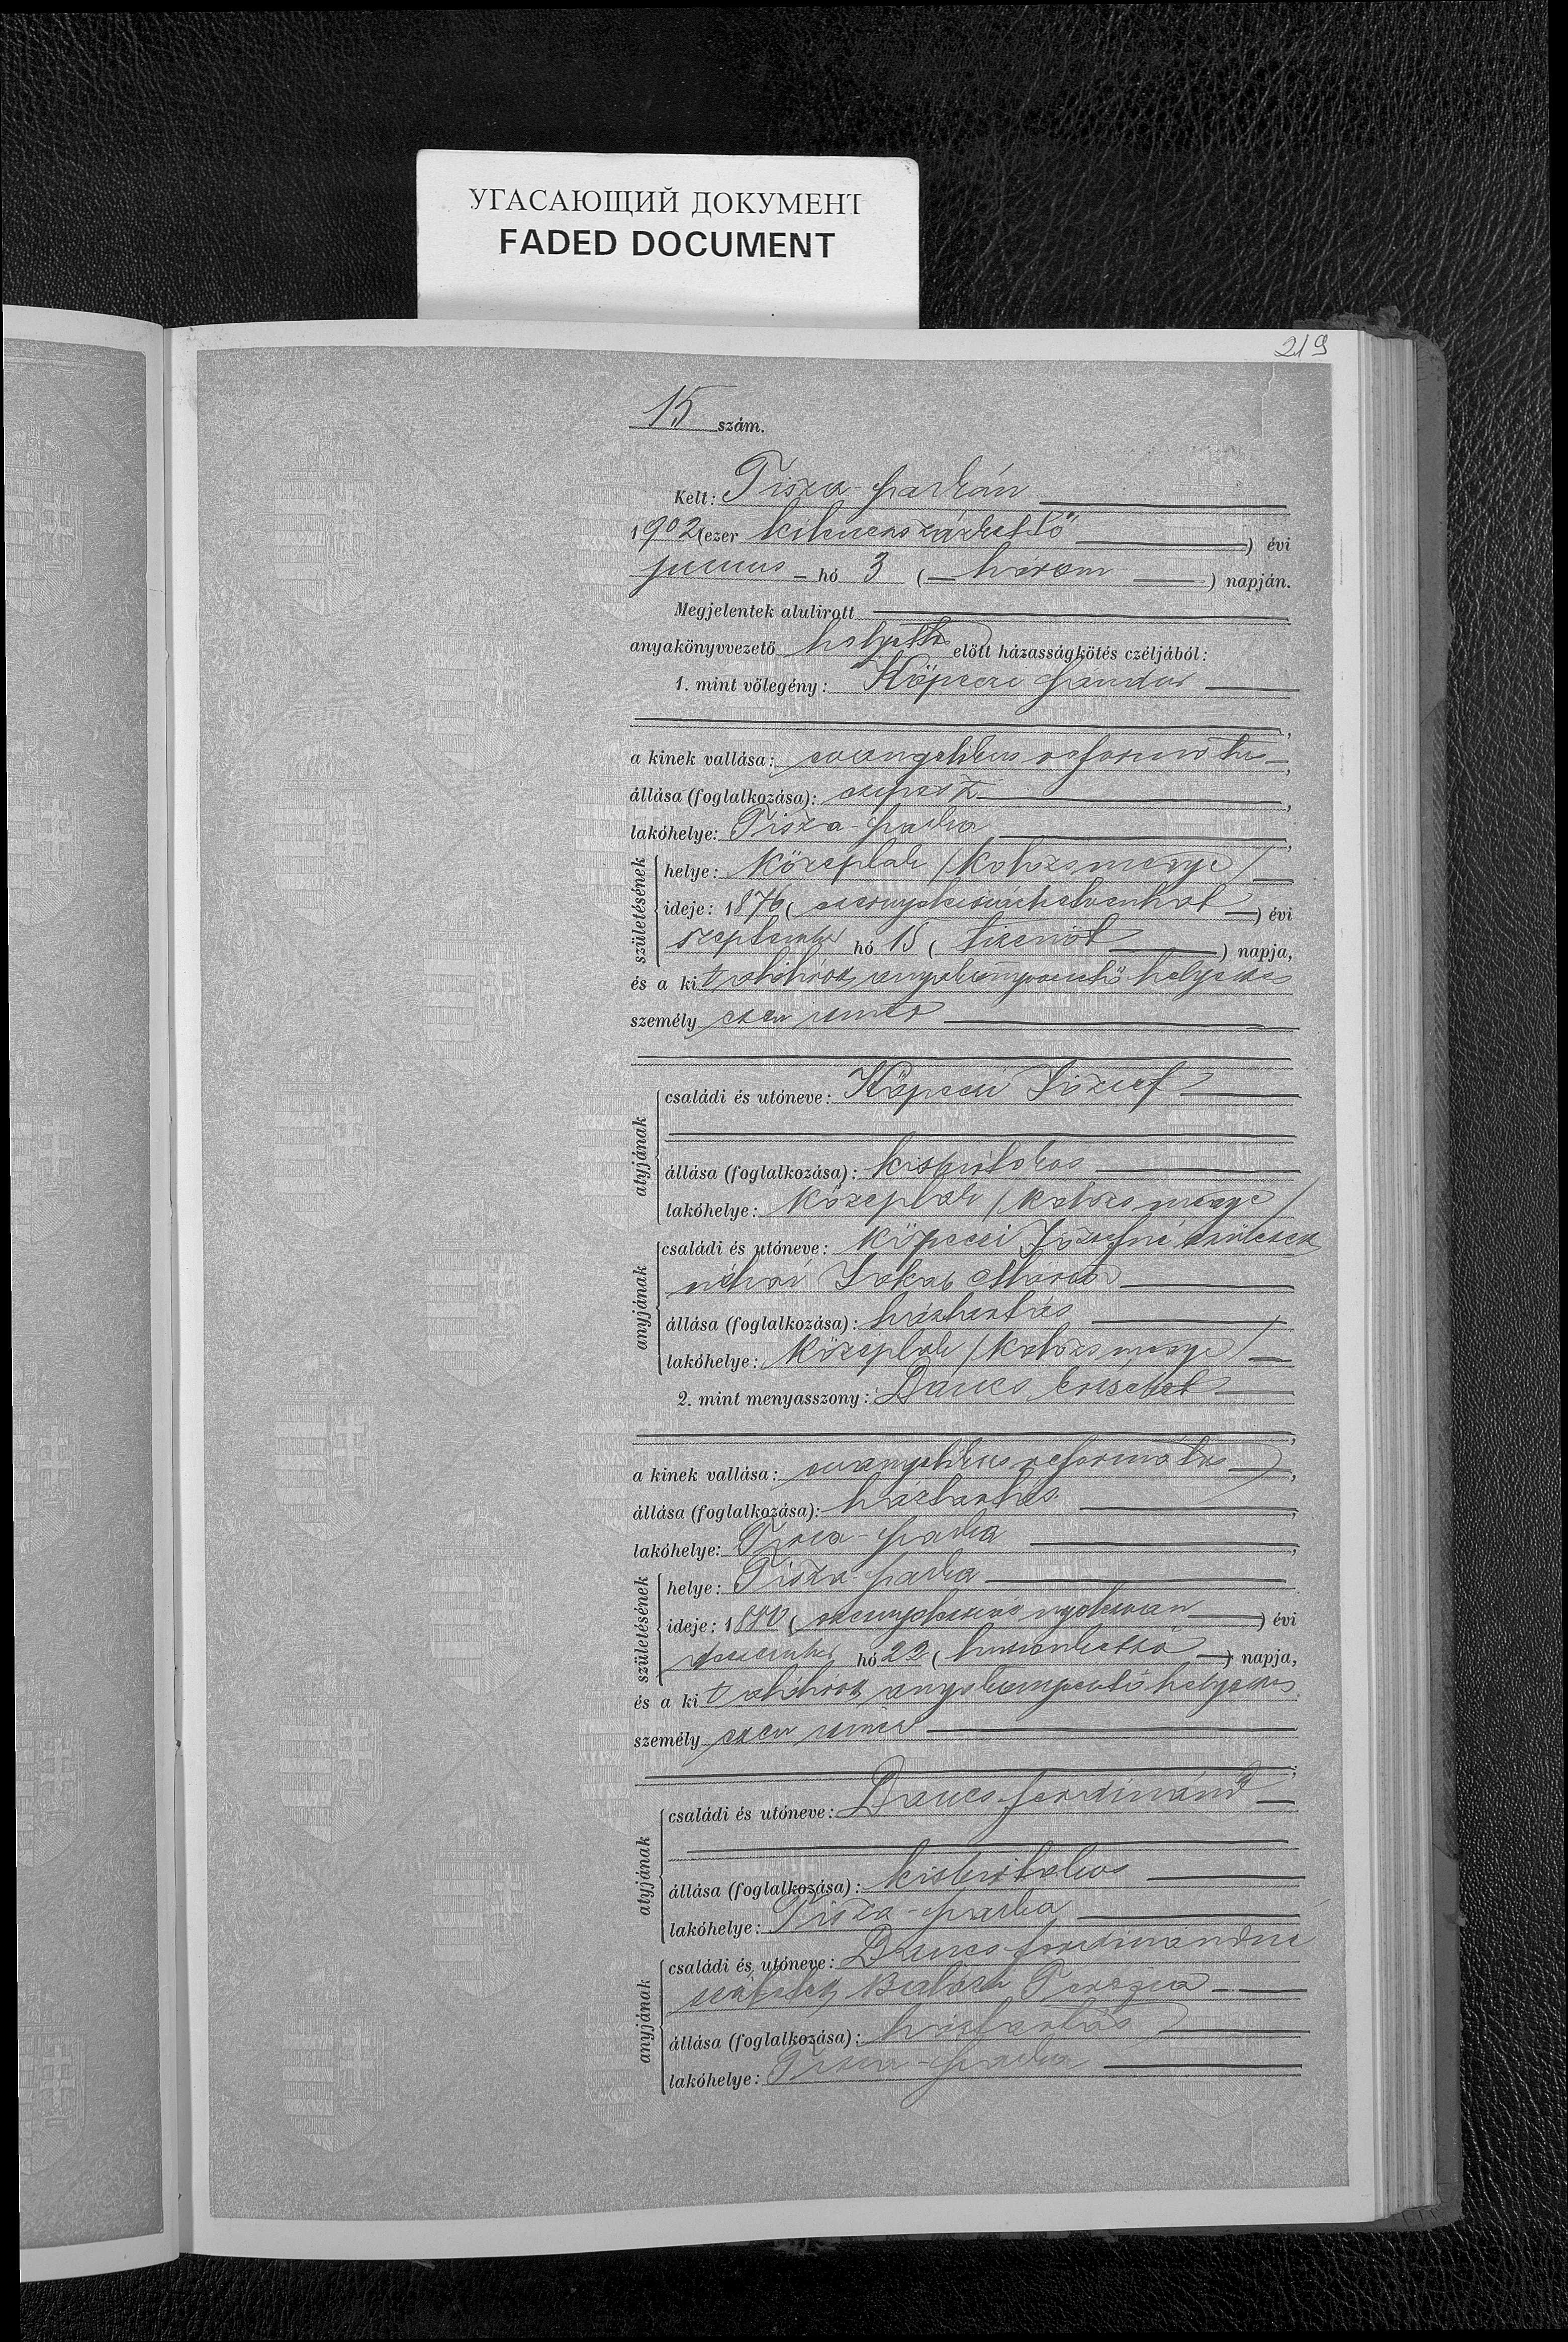 УГАСАЮЩИЙ ДОКУМЕНТ
FADED DOCUMENT
219
15 szám.
Kelt: Tisza-
1902 (ezer kilenczszázkettő) évi
junius hó 3 (három) napján.
Megjelentek alulirott
anyakönyvvezető helyettes előtt házasságkötés czéljából:
1. mint vőlegény: Köpeczi Sándor
a kinek vallása: evangelikus református,
állása (foglalkozása):
lakóhelye: Tisza-
születésének
helye: Középlak /Kolozsmegye/
ideje: 1876 ( ) évi
szeptember hó 15 (tizenöt) napja,
és a ki t alulirott anyakönyvvezető helyettes
személy esen ismer
atyjának
családi és utóneve: Köpeczi József
állása (foglalkozása): kisbirtokos
lakóhelye: Középlak /Kolozsmegye/
anyjának
családi és utóneve: Köpeczi Józsefné született
néhai Jakab Mária
állása (foglalkozása): háztartás
lakóhelye: Középlak /Kolozsmegye/
2. mint menyasszony: Dancs Erzsébet
a kinek vallása: evangelikus református,
állása (foglalkozása): háztartás
lakóhelye: Tisza-
születésének
helye: Tisza-
ideje: 1880 (ezernyolczszáz nyolczvan) évi
deczember hó 22 (huszonkettő) napja,
és a ki t alulirott anyakönyvvezető helyettes
személy esen ismer
atyjának
családi és utóneve: Dancs Ferdinánd
állása (foglalkozása): kisbirtokos
lakóhelye: Tisza-
anyjának
családi és utóneve: Dancs Ferdinándné
született Terézia
állása (foglalkozása): háztartás
lakóhelye: Tisza-